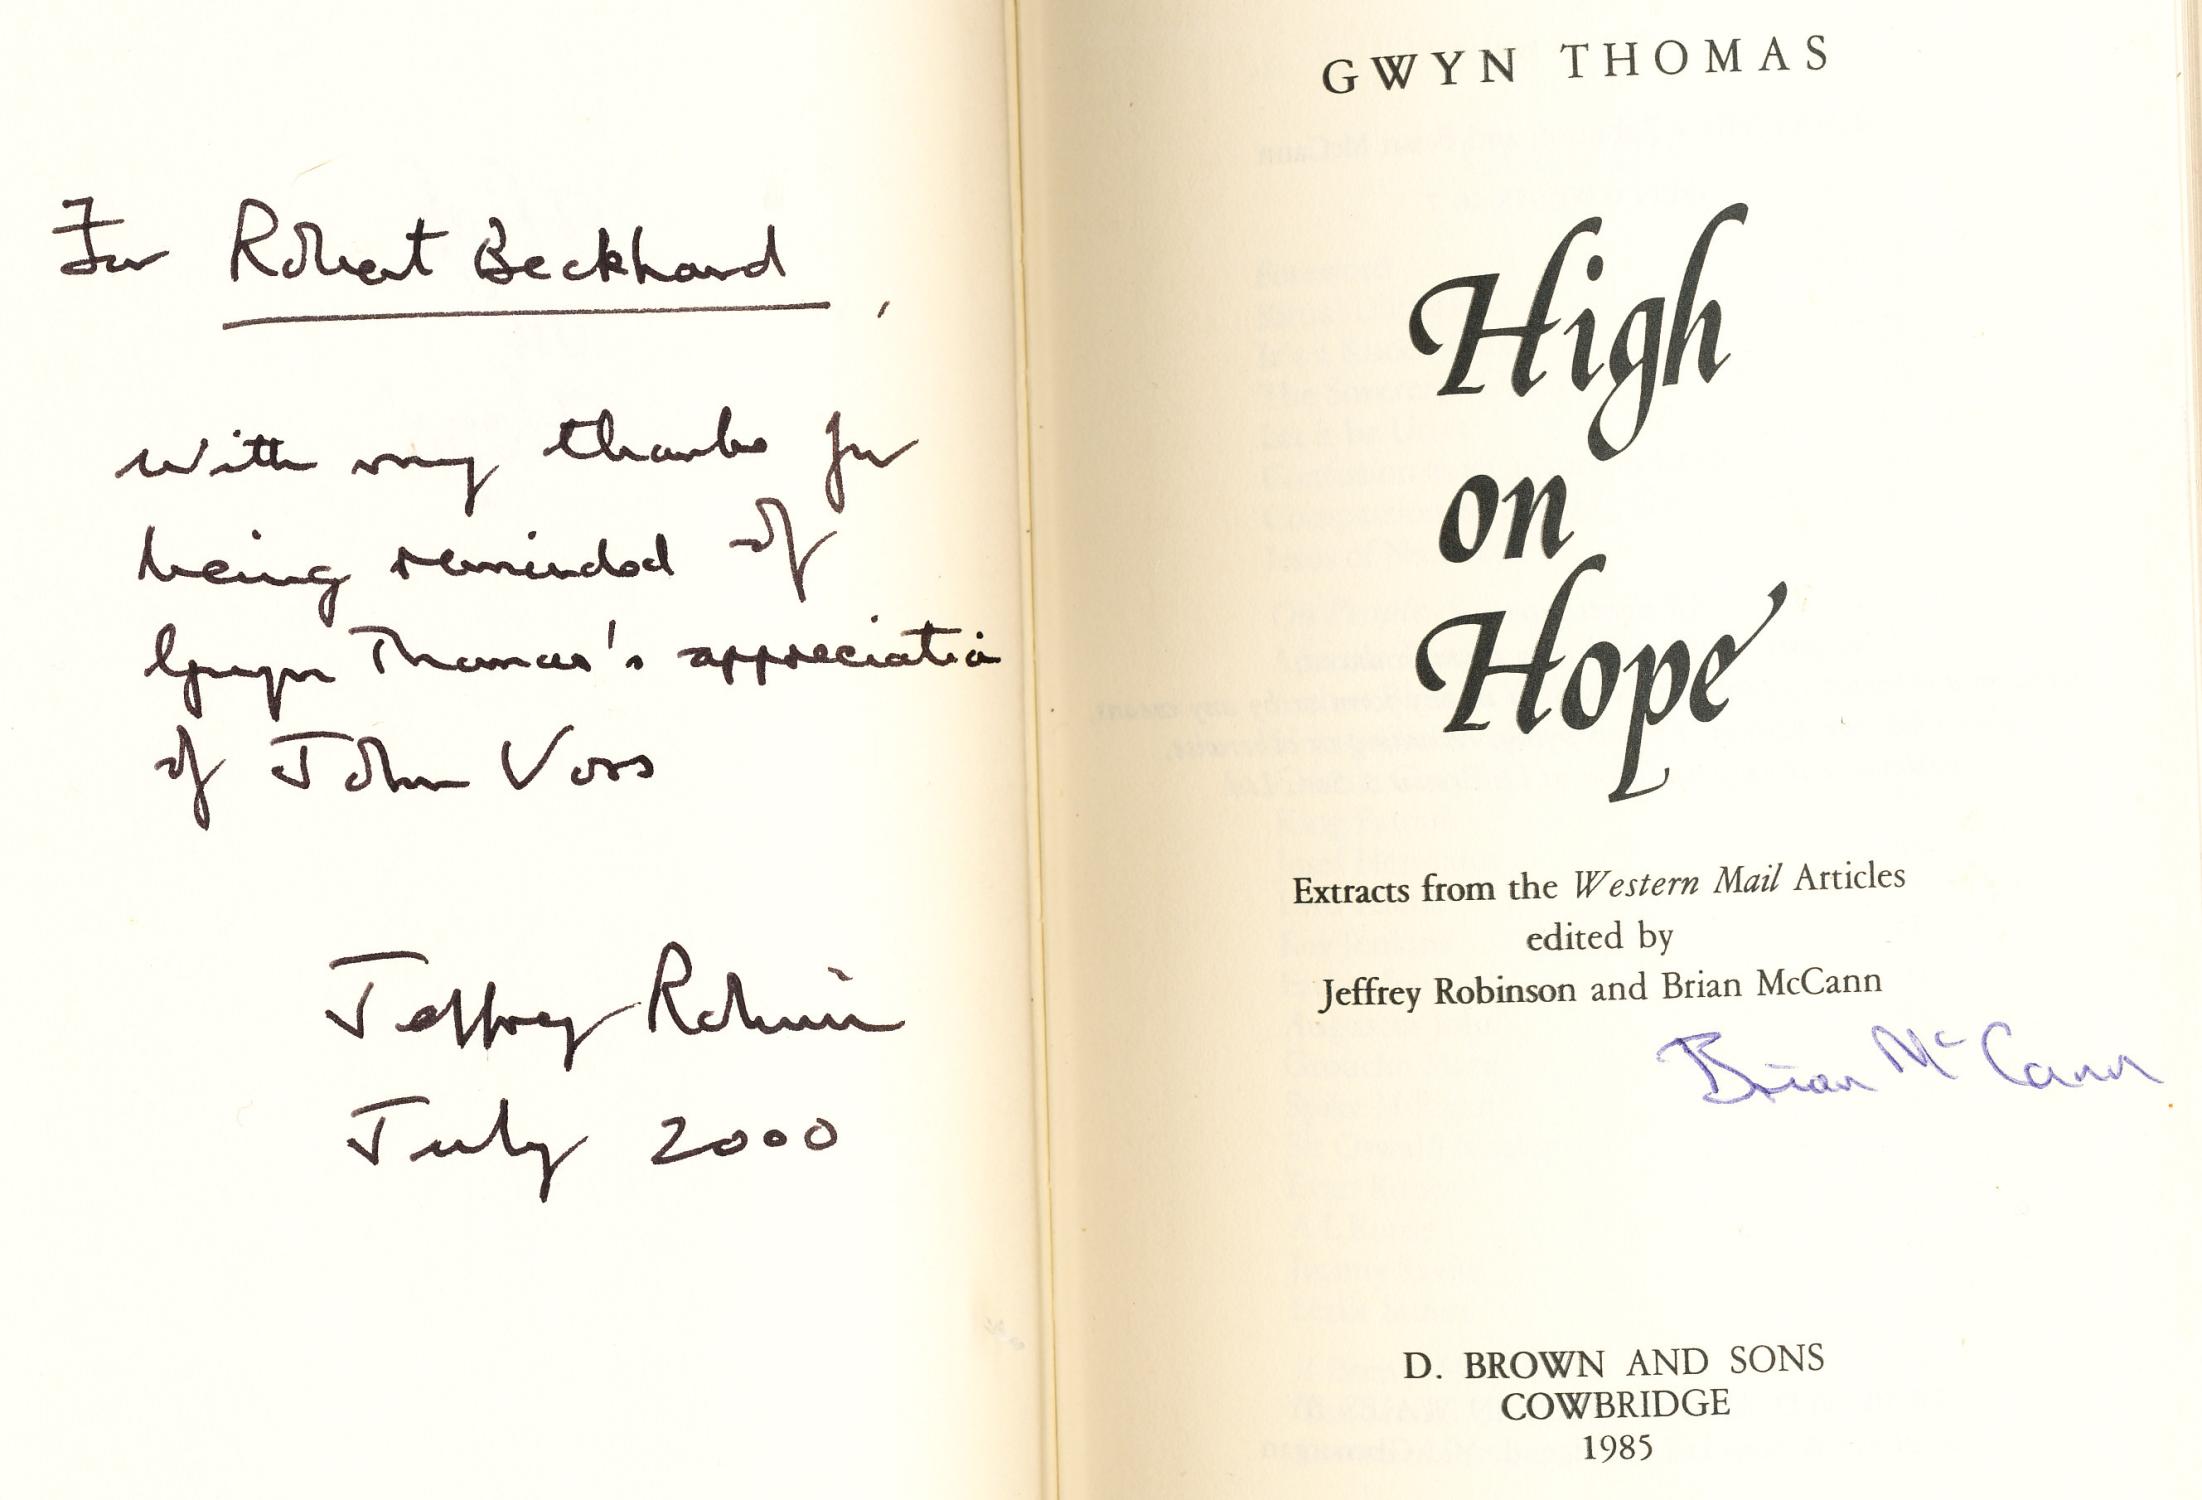 For Robert Beckhard,
with my thanks for
being reminded of
Gwyn Thomas's appreciation
of John Voss
Jeffrey Robinson
July 2000
GWYN THOMAS
High
on
Hope
Extracts from the Western Mail Articles
edited by
Jeffrey Robinson and Brian McCann
Brian McCann
D. BROWN AND SONS
COWBRIDGE
1985